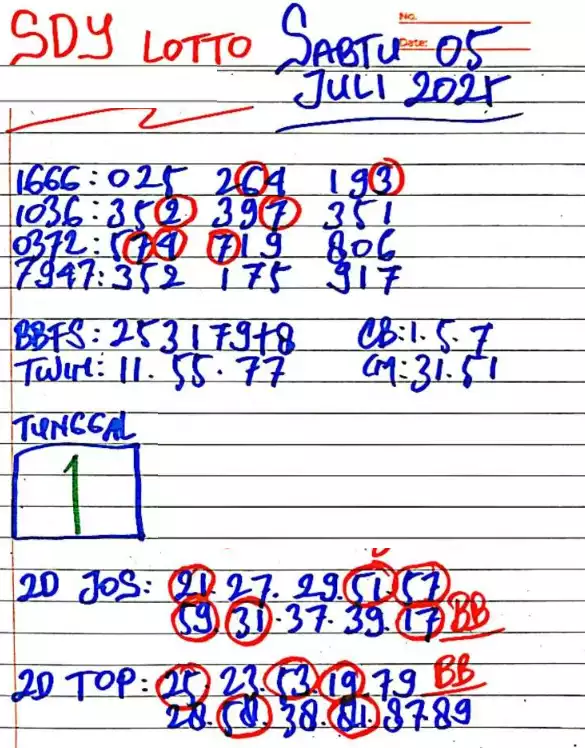 No.
Date:
SDY LOTTO SABTU 05
JULI 2025
1666: 025 264 193
1036: 352 397 351
0372: 574 719 806
7947: 352 175 917
BBFS: 253179+8 CB: 1. 5. 7
TWIN: 11. 55. 77 CM: 31. 51
TUNGGAL
1
2D JOS: 21. 27. 29. 51. 57
59. 31. 37. 39. 17 BB
2D TOP: 25. 23. 53. 19. 79 BB
28. 58. 38. 81. 87 89